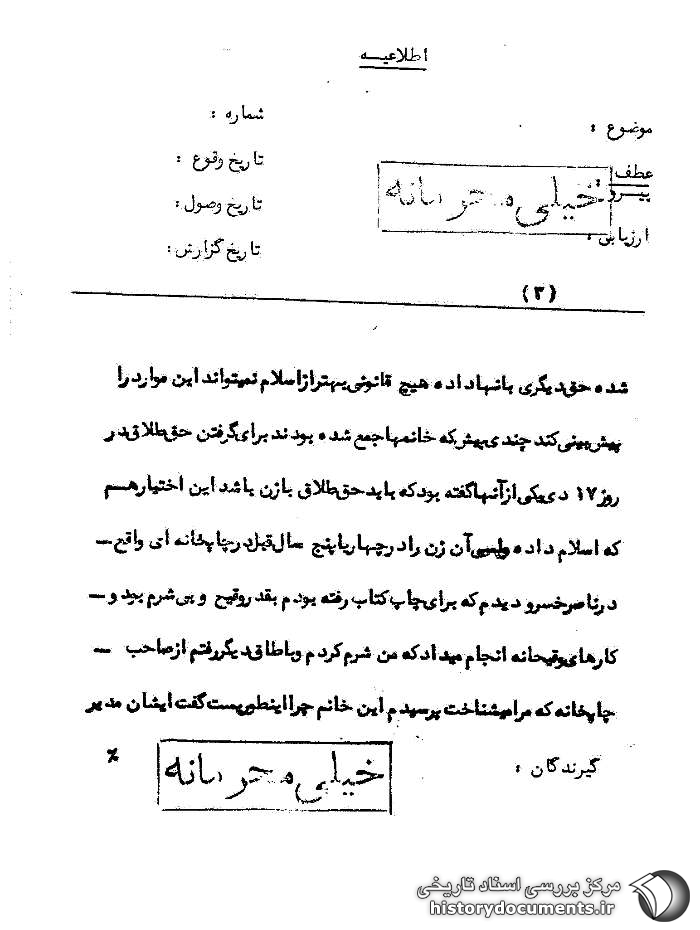 اطلاعیه
شماره :
موضوع :
تاریخ وقوع :
عطف :
پیرو
خیلی محرمانه
تاریخ وصول :
ارزیابی :
تاریخ گزارش :
(۳)
شده حق دیگری بانها داده هیچ قانونی بهتر از اسلام نمیتواند این موارد را
پیش بینی کند چندی پیش که خانمها جمع شده بودند برای گرفتن حق طلاق در
روز ۱۷ دی یکی از آنها گفته بود که باید حق طلاق بازن باشد این اختیار هم
که اسلام داده ولیس آن زن را در چهار یا پنج سال قبل در چاپخانه ای واقع –
در ناصر خسرو دیدم که برای چاپ کتاب رفته بودم بقدر وقیح و بی شرم بود و –
کارهای وقیحانه انجام میداد که من شرم کردم و باطاق دیگر رفتم از صاحب –
چاپخانه که مرا میشناخت پرسیدم این خانم چرا اینطوریست گفت ایشان مدیر
گیرندگان :
خیلی محرمانه
٪
مرکز بررسی اسناد تاریخی
historydocuments.ir